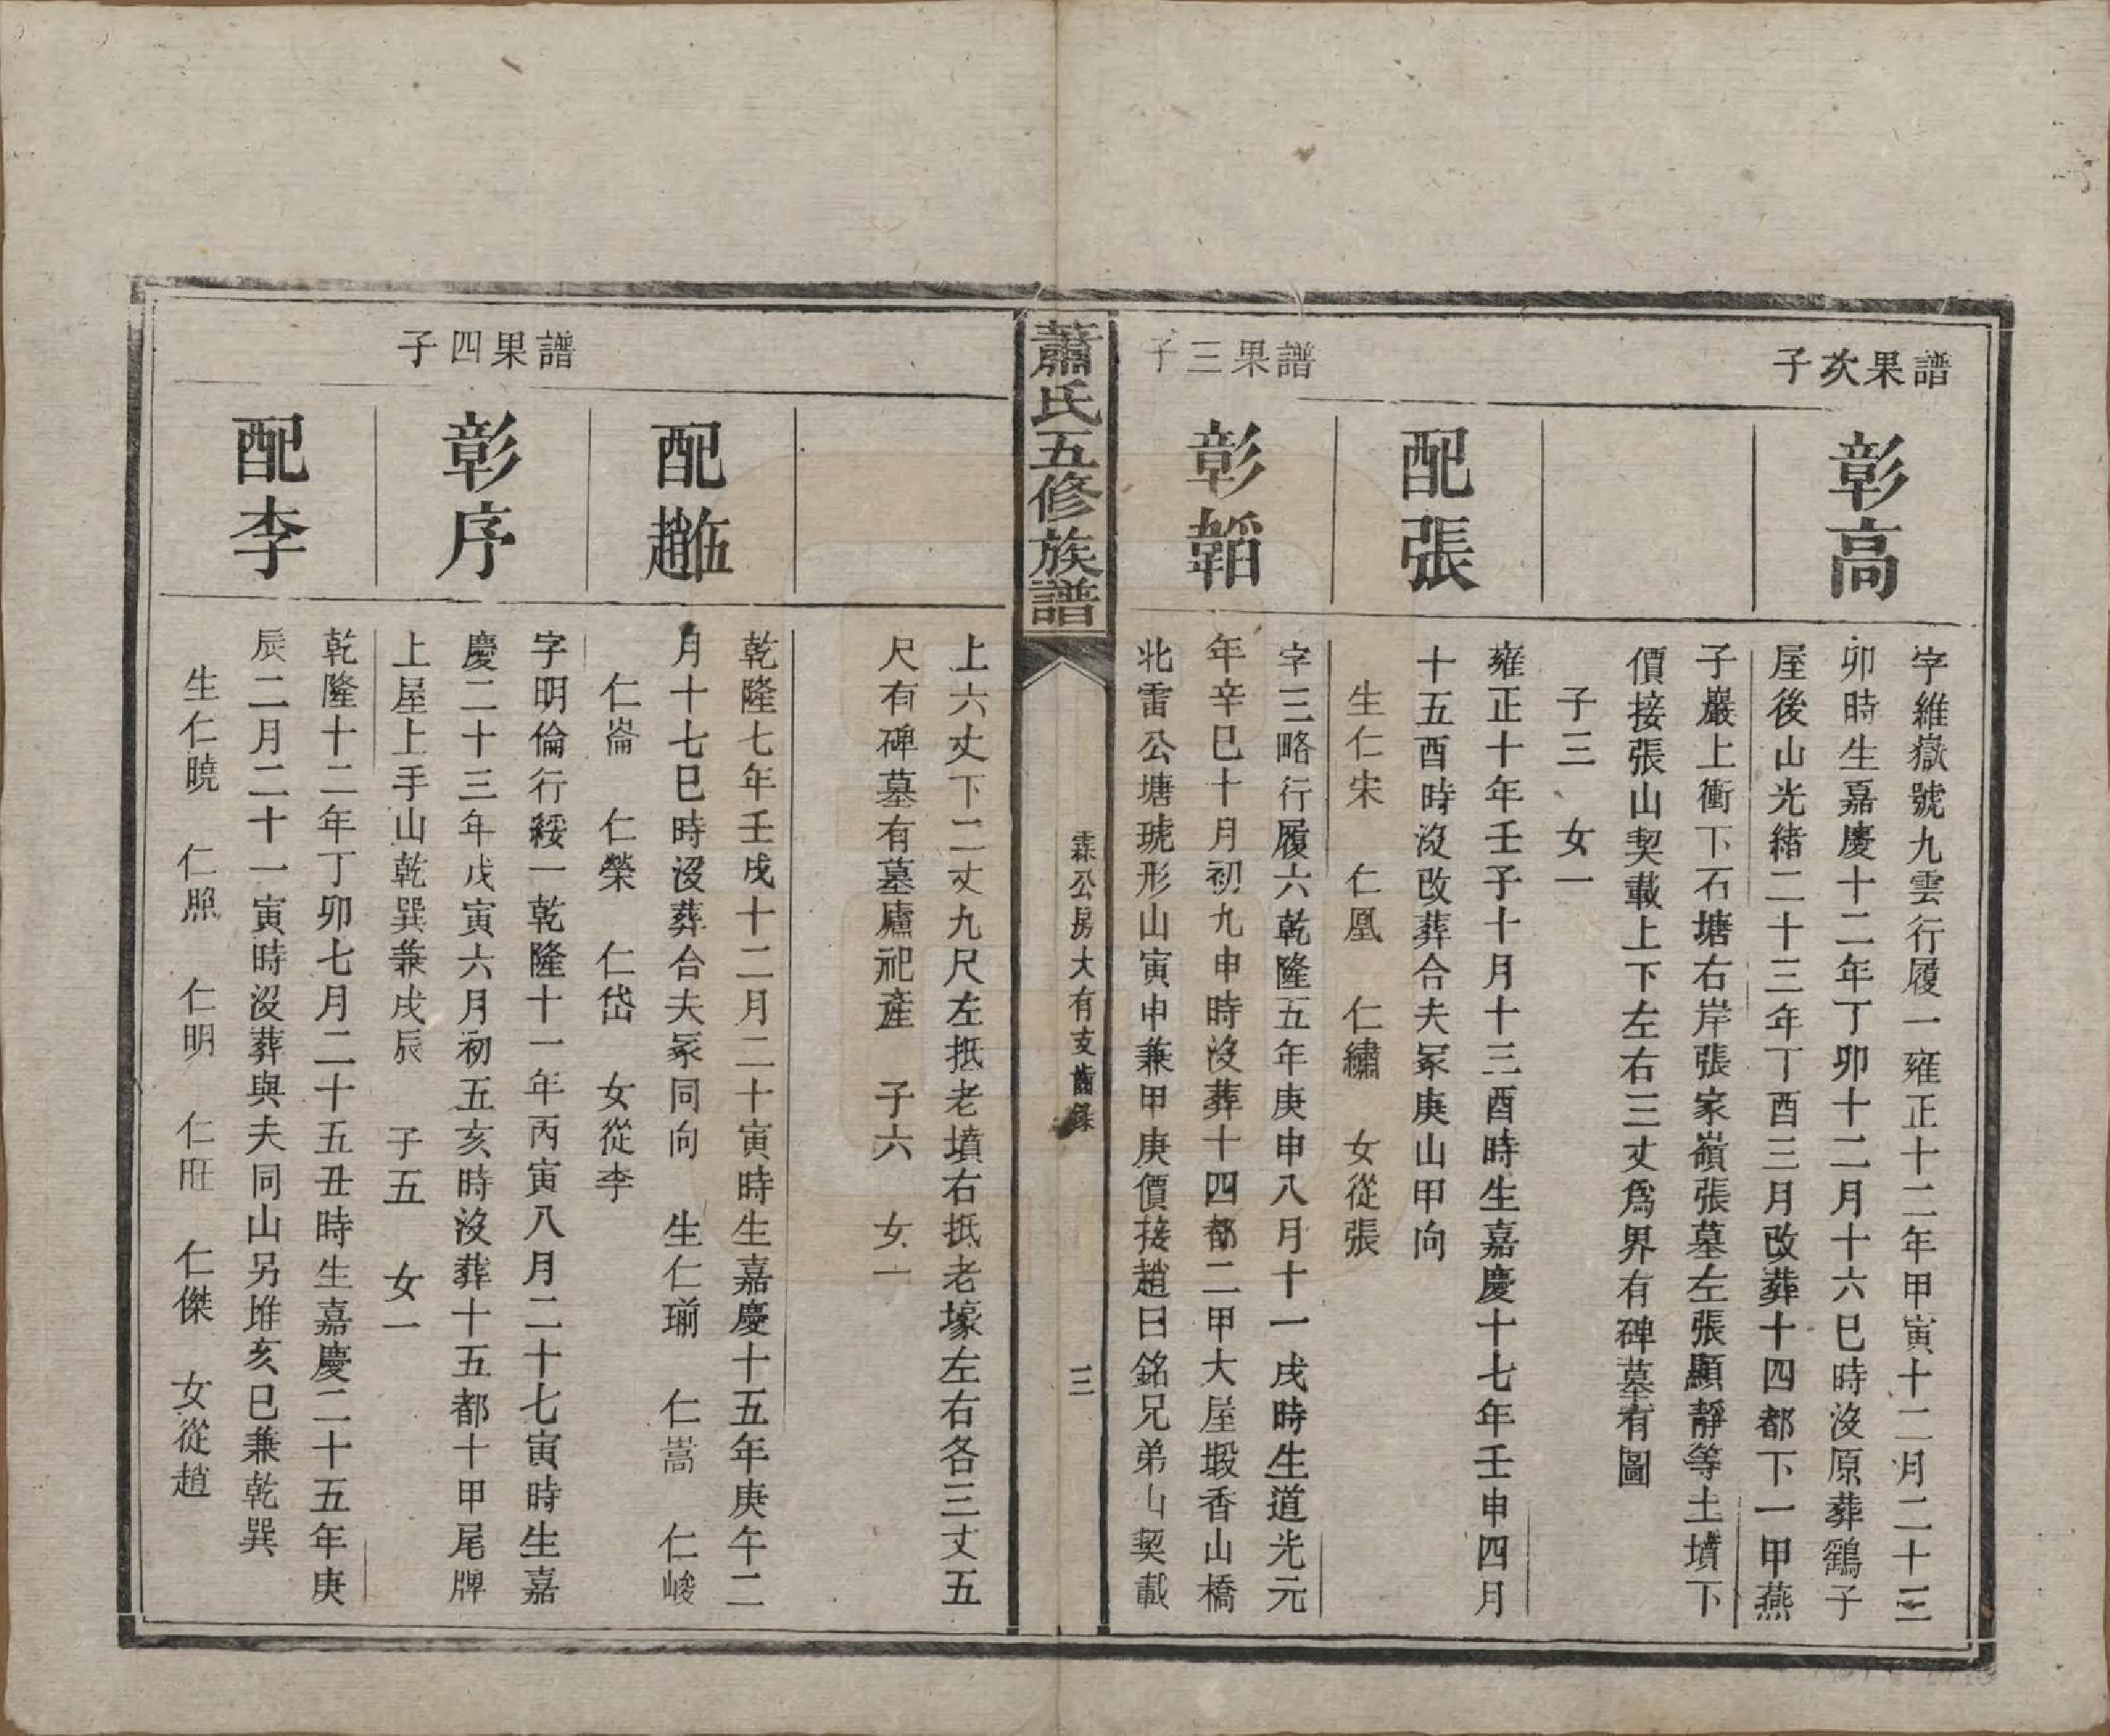 譜果次子
彰高
字維嶽號九雲行履一雍正十二年甲寅十二月二十三
卯時生嘉慶十二年丁卯十二月十六巳時沒原葬鷄子
屋後山光緒二十三年丁酉三月改葬十四都下一甲燕
子巖上衝下石塘右岸張家嶺張墓左張顯靜等土墳下
價接張山契載上下左右三丈爲界有碑墓有圖
子三　女一
配張
雍正十年壬子十月十三酉時生嘉慶十七年壬申四月
十五酉時沒改葬合夫冢庚山甲向
生仁宋　仁凰　仁繡　女從張
譜果三子
彰韜
字三略行履六乾隆五年庚申八月十一戌時生道光元
年辛巳十月初九申時沒葬十四都二甲大屋塅香山橋
北雷公塘琥形山寅申兼甲庚價接趙日銘兄弟山契載
蕭氏五修族譜
霖公房大有支齒錄
三
上六丈下二丈九尺左抵老墳右抵老壕左右各三丈五
尺有碑墓有墓廬祀產　子六　女一
配趙伍
乾隆七年壬戌十二月二十寅時生嘉慶十五年庚午二
月十七巳時沒葬合夫冢同向　生仁瑐　仁嵩　仁峻
仁崙　仁榮　仁岱　女從李
譜果四子
彰序
字明倫行綏一乾隆十一年丙寅八月二十七寅時生嘉
慶二十三年戊寅六月初五亥時沒葬十五都十甲尾牌
上屋上手山乾巽兼戌辰　子五　女一
配李
乾隆十二年丁卯七月二十五丑時生嘉慶二十五年庚
辰二月二十一寅時沒葬與夫同山另堆亥巳兼乾巽
生仁曉　仁照　仁明　仁旺　仁傑　女從趙